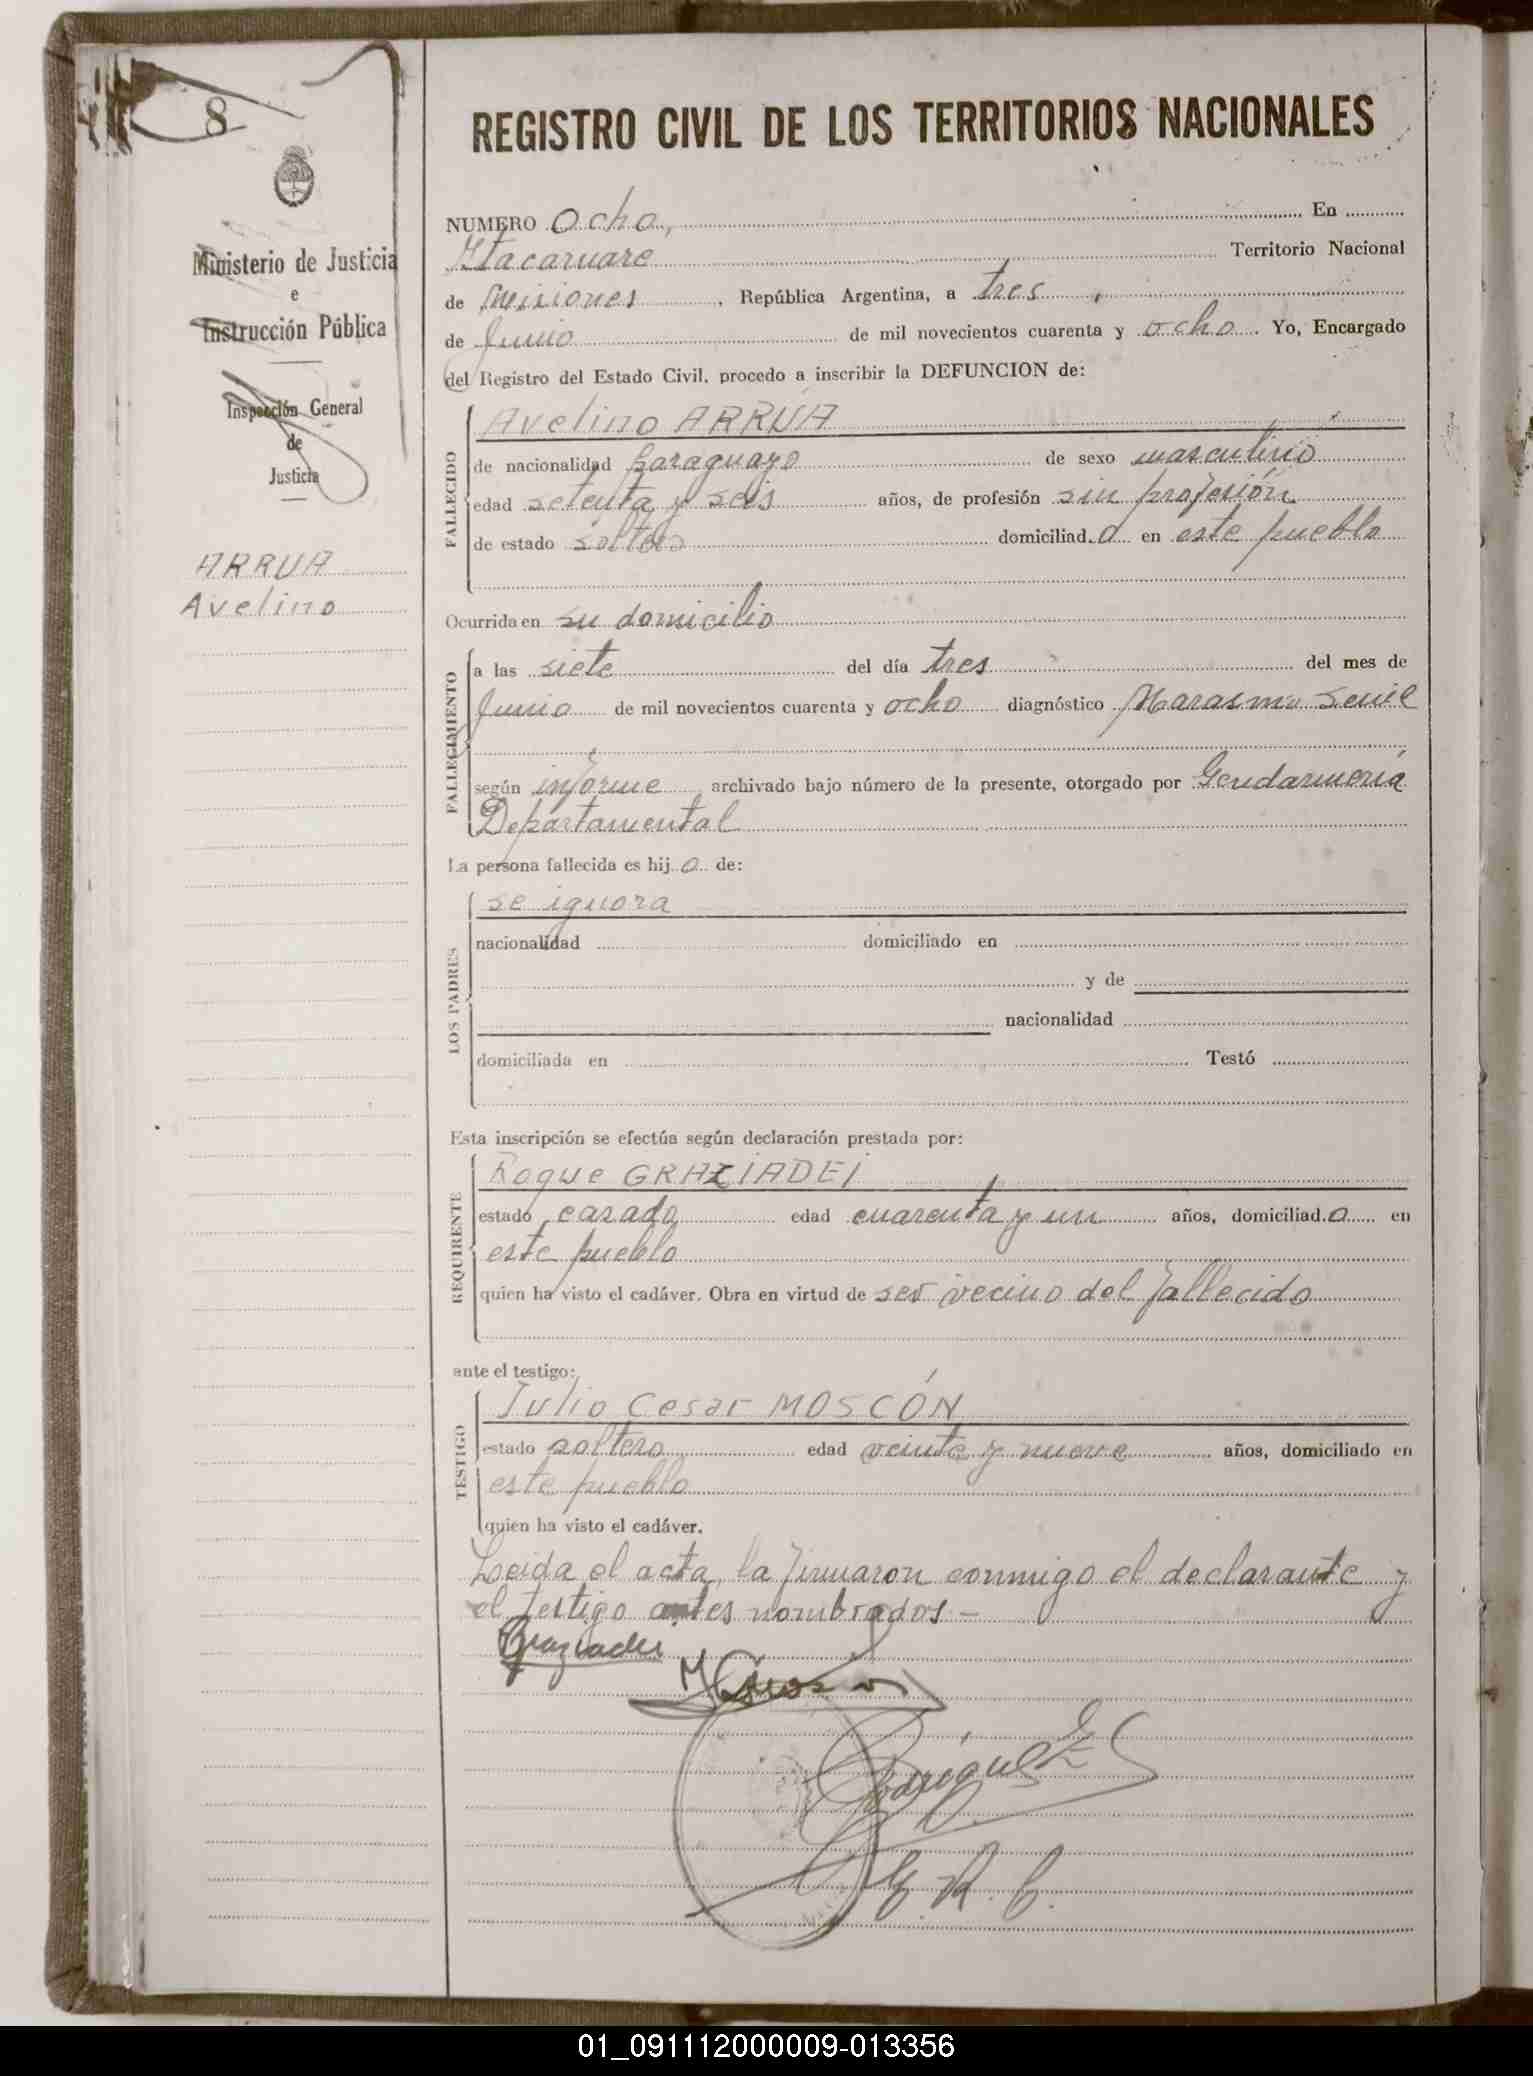 8
Ministerio de Justicia
e
Instrucción Pública
Inspección General
de
Justicia
ARRUA
Avelino
REGISTRO CIVIL DE LOS TERRITORIOS NACIONALES
NUMERO Ocho, En
Itacaruare Territorio Nacional
de Misiones, República Argentina, a tres,
de Junio de mil novecientos cuarenta y ocho. Yo, Encargado
del Registro del Estado Civil, procedo a inscribir la DEFUNCION de:
FALLECIDO
Avelino ARRUA
de nacionalidad paraguayo de sexo masculino
edad setenta y seis años, de profesión sin profesión
de estado soltero domiciliad o en este pueblo
Ocurrida en su domicilio
FALLECIMIENTO
a las siete del día tres del mes de
Junio de mil novecientos cuarenta y ocho diagnóstico Marasmo senil
según informe archivado bajo número de la presente, otorgado por Gendarmería
Departamental
La persona fallecida es hij o de:
LOS PADRES
se ignora
nacionalidad domiciliado en
y de
nacionalidad
domiciliada en Testó
Esta inscripción se efectúa según declaración prestada por:
REQUIRENTE
Roque GRAZIADEI
estado casado edad cuarenta y un años, domiciliad o en
este pueblo
quien ha visto el cadáver. Obra en virtud de ser vecino del fallecido
ante el testigo:
TESTIGO
Julio Cesar MOSCÓN
estado soltero edad veinte y nueve años, domiciliado en
este pueblo
quien ha visto el cadáver.
Leida el acta, la firmaron conmigo el declarante y
el testigo antes nombrados.-
Graziadei
Rodríguez
E. R. C.
01_091112000009-013356